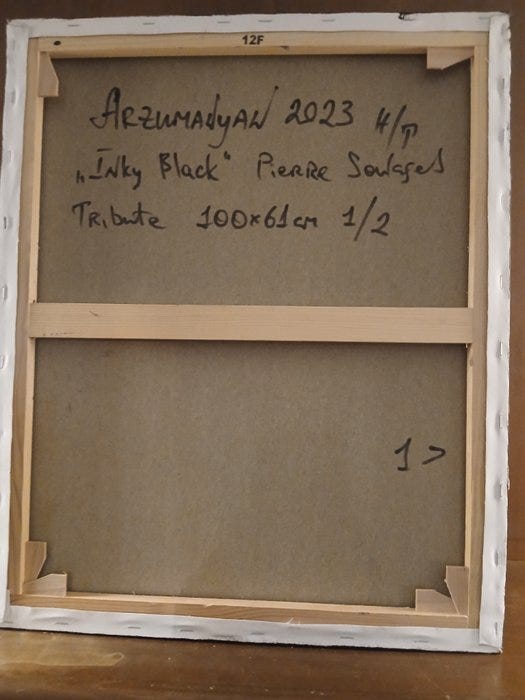 12F
ARZUMANYAN 2023 H/T
„INky Black“ PIERRE Soulages
TRibute 100×61cm 1/2
1 >